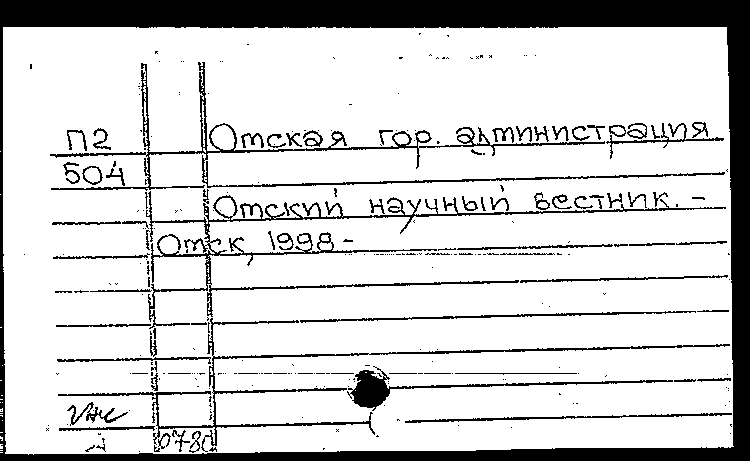 П2 Отская гор. администрация.
504
Отский научный вестник. -
Отск, 1998 -
0780